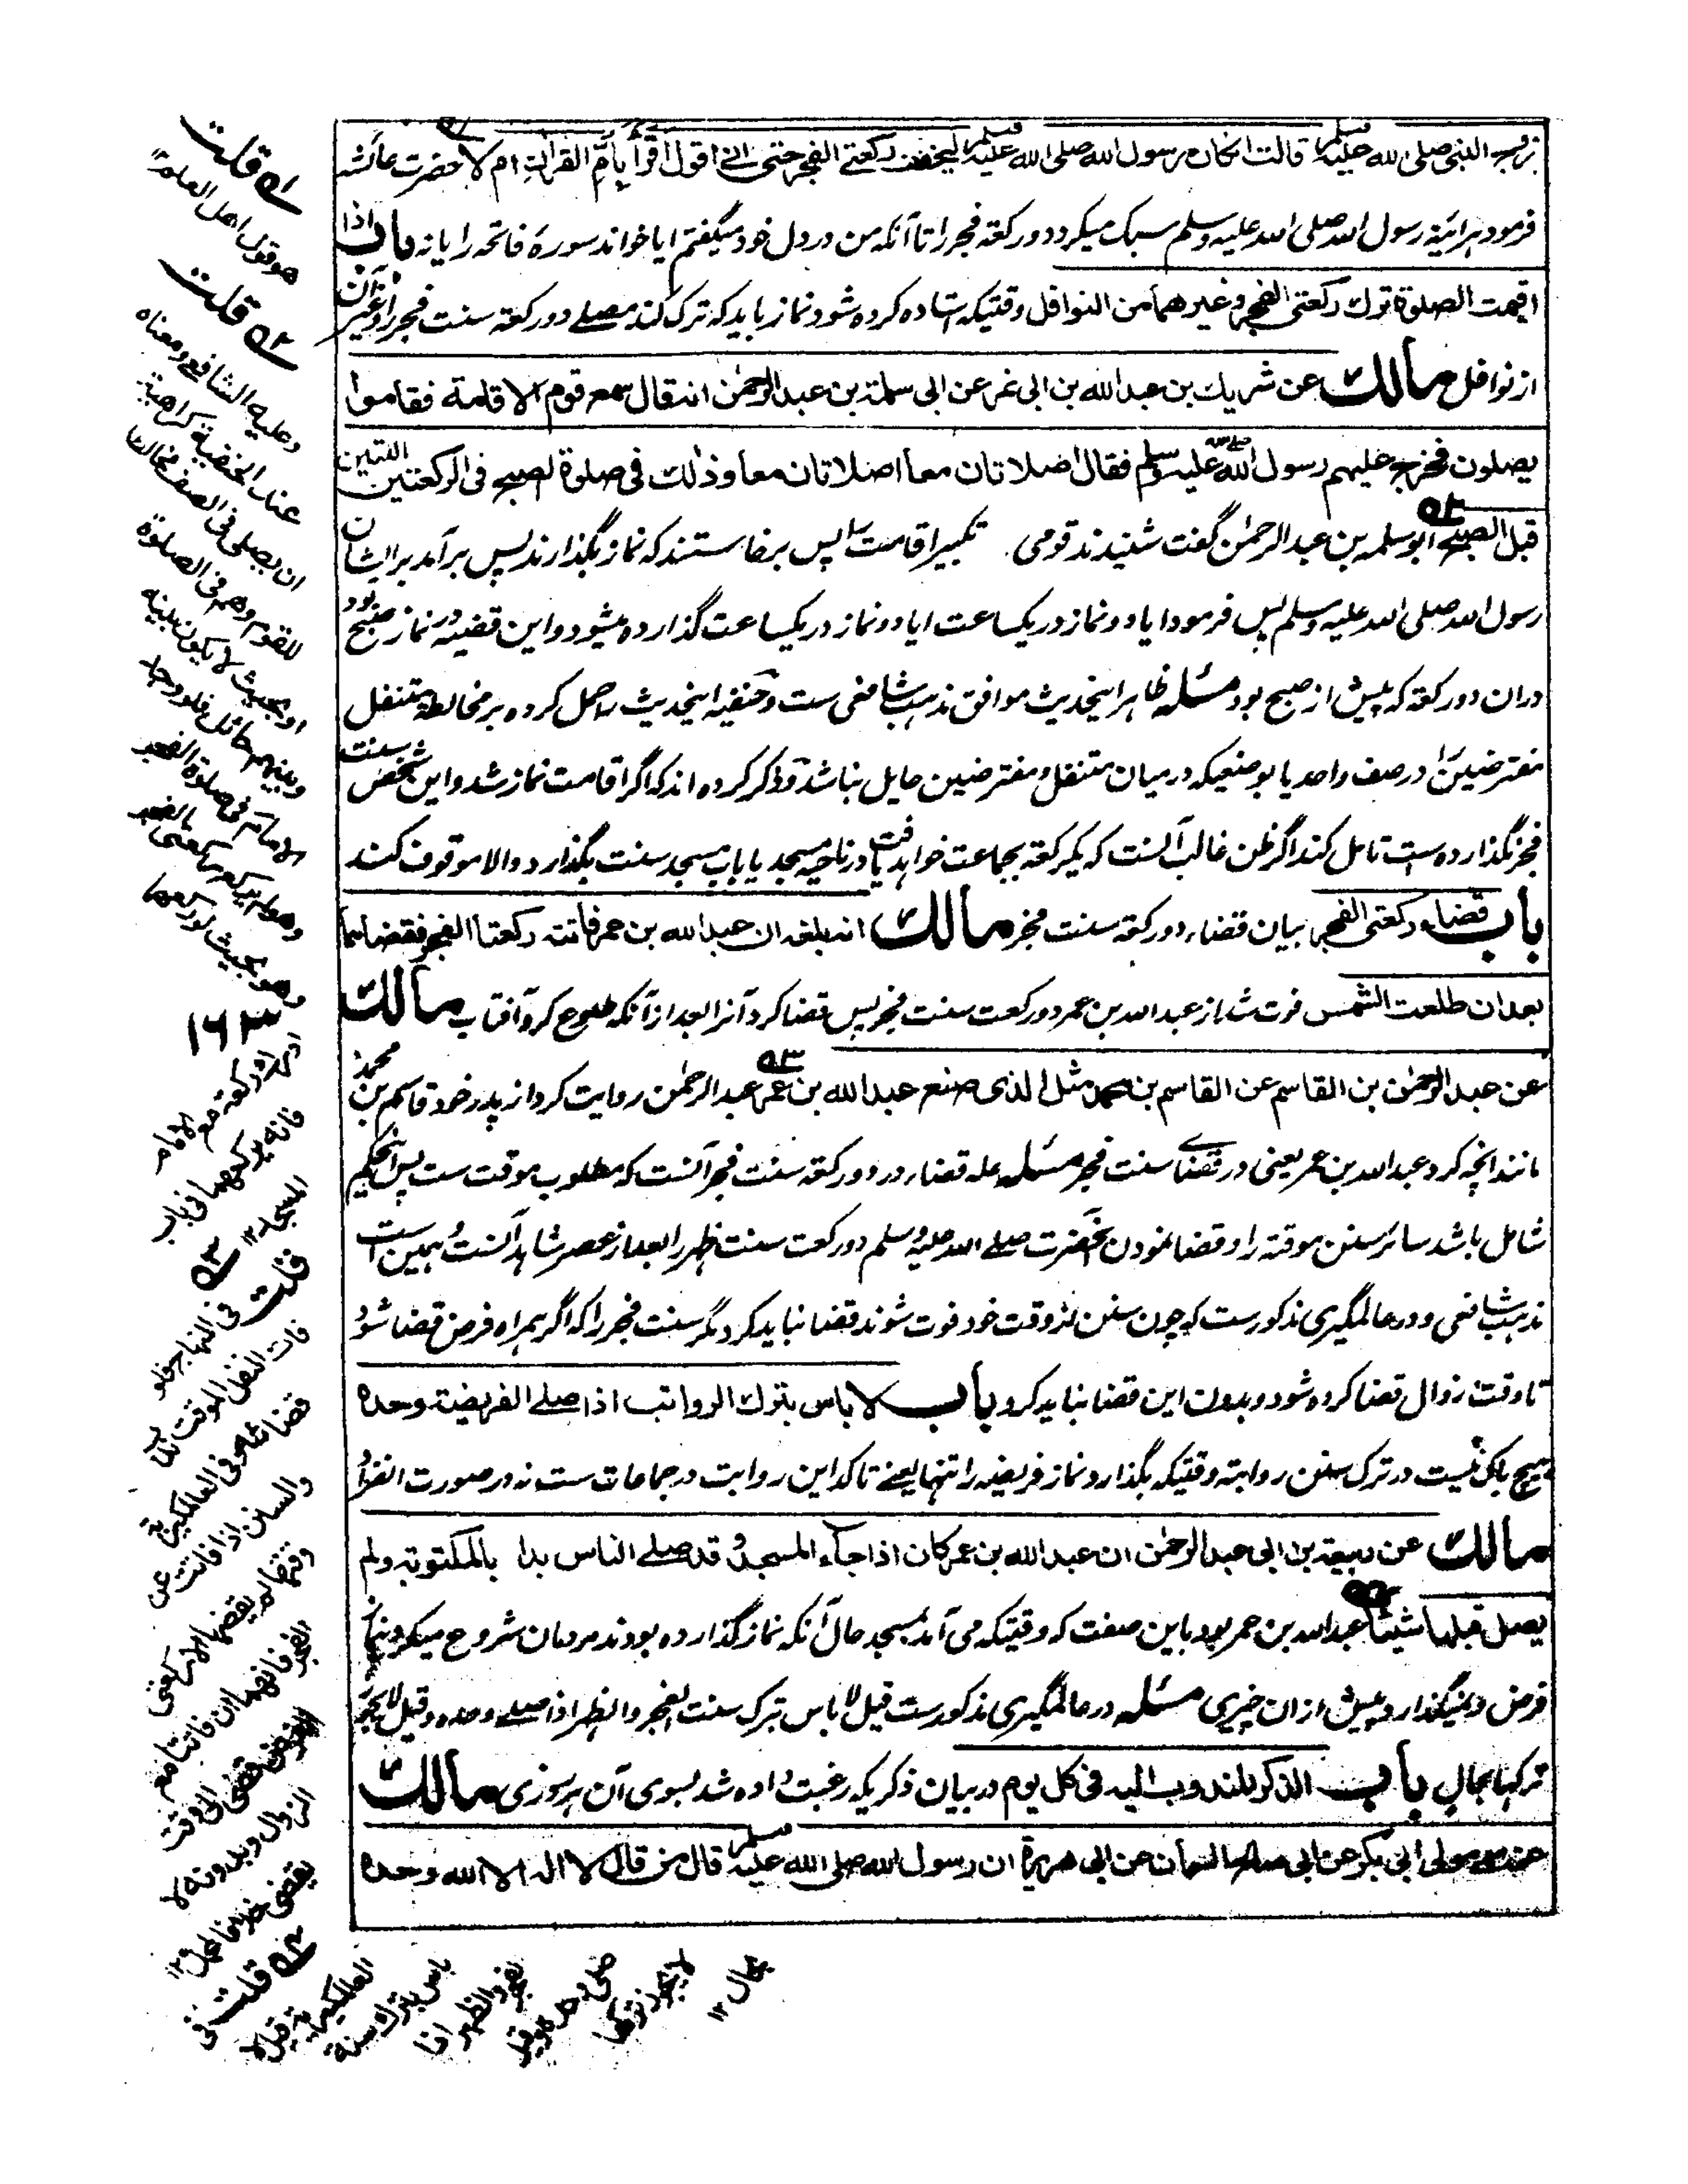 زوج النبی صلی الله علیه وسلم قالت ان کان رسول الله صلی الله علیه وسلم لیخفف رکعتے الفجر حتی انے اقول اقرأ بأمّ القراٰن ام لا حضرت عائشہ
فرمود ہر آئینہ رسول اللہ صلی اللہ علیہ وسلم سبک میکرد دو رکعتہ فجر را تا آنکہ من در دل خود میگفتم ایا خواند سورۂ فاتحہ را یا نہ باب اذا
اقیمت الصلوة ترك رکعتی الفجر وغیرهما من النوافل وقتیکہ استادہ کردہ شود نماز باید کہ ترک کند مصلے دو رکعتہ سنت فجر را وغیر آن
از نوافل مالك عن شریك بن عبد الله بن ابی نمر عن ابی سلمة بن عبد الرحمٰن انه قال سمع قوم الاقامة فقاموا
یصلون فخرج علیهم رسول الله صلی الله علیه وسلم فقال اصلاتان معا اصلاتان معا وذٰلك فی صلوة الصبح فی الرکعتین اللتین
قبل الصبح ابو سلمہ بن عبد الرحمٰن گفت شنیدند قومی تکبیر اقامت را پس برخاستند کہ نماز بگذارند پس برآمد بر ایشان
رسول اللہ صلی اللہ علیہ وسلم پس فرمود ایا دو نماز در یکساعت ایا دو نماز در یکساعت گذاردہ میشود و این قضیہ در نماز صبح بود
دران دو رکعتہ کہ پیش از صبح بود مسئلہ ظاہر اینحدیث موافق مذہب شافعی ست و حنفیہ اینحدیث را حمل کردہ بر مخالطۂ متنفل
مفترضین را در صف واحد یا بوضعیکہ درمیان متنفل و مفترضین حایل نباشد و ذکر کردہ اند کہ اگر اقامت نماز شد و این شخص سنت
فجر نگذاردہ ست تامل کند اگر ظن غالب آنست کہ یکرکعتہ بجماعت خواہد یافت در ناحیہ مسجد یا باب مسجد سنت بگذارد والا موقوف کند
باب قضاء رکعتی الفجر بیان قضاء دو رکعتہ سنت فجر مالك انه بلغه ان عبد الله بن عمر فاتته رکعتا الفجر فقضاهما
بعد ان طلعت الشمس فوت شد از عبد اللہ بن عمر دو رکعت سنت فجر پس قضا کرد آنرا بعد از آنکہ طلوع کرد آفتاب مالك
عن عبد الرحمٰن بن القاسم عن القاسم بن محمد مثل الذی صنع عبد الله بن عمر عبد الرحمٰن روایت کرد از پدر خود قاسم بن محمد
مانند انچہ کرد عبد اللہ بن عمر یعنی در قضاے سنت فجر مسئلہ علہ قضاء در دو رکعتہ سنت فجر آنست کہ مطلوب موقت ست پس این حکم
شامل باشد سائر سنن موقتہ را و قضا نمودن آنحضرت صلے اللہ علیہ وسلم دو رکعت سنت ظہر را بعد از عصر شاہد آنست و ہمین است
مذہب شافعی و در عالمگیری مذکورست کہ چون سنن از وقت خود فوت شوند قضا نباید کرد مگر سنت فجر را کہ اگر ہمراہ فرض قضا شود
تا وقت زوال قضا کردہ شود و بدون این قضا نباید کرد باب لا باس بترك الرواتب اذا صلے الفریضة وحده
ہیچ باکی نیست در ترک سنن رواتبہ وقتیکہ بگذارد نماز فریضہ را تنہا یعنے تاکد این رواتب در جماعات ست نہ در صورت انفراد
مالك عن ربیعة بن ابی عبد الرحمٰن ان عبد الله بن عمر کان اذا جاء المسجد و قد صلے الناس بدأ بالمکتوبة ولم
یصل قبلها شیئا عبد اللہ بن عمر بود باین صفت کہ وقتیکہ می آمد بمسجد حال آنکہ نماز گذاردہ بودند مردمان شروع میکرد بنماز
فرض و نمیگذارد پیش از ان چیزی مسئلہ در عالمگیری مذکورست قیل لا باس بترک سنت الفجر والظہر اذا صلے وحدہ وقیل لا یجوز
ترکہا بحال باب الذکر المندوب الیه فی کل یوم در بیان ذکریکہ رغبت دادہ شد بسوی آن ہر روزی مالك
عن سمی مولی ابی بکر عن ابی صالح السمان عن ابی هریرة ان رسول الله صلی الله علیه وسلم قال من قال لا اله الا الله وحده
۵۱ قلت
هو قول اهل العلم ۱۲
۵۲ قلت
وعلیه الشافعی ومعناه
عند الحنفیة کراهیة
ان یصلی فی الصف مخالطا
للقوم وهم فی الصلوة
او بحیث لا یکون بینه
وبینهم حائل فلو وجد
الامام فی صلوة الفجر
وهو لم یرکع رکعتی الفجر
وهو بحیث لو رکعهما
۱۶۳
ادرك رکعة مع الامام
فانه یرکعهما فی باب
المسجد ۱۲
۵۳
قلت فی المنهاج ولو
فات النفل الموقت ندب
قضائه وفی العالمکیریة
والسنن اذا فاتت عن
وقتها لم یقضها الا رکعتی
الفجر فانهما ان فاتتا مع
الفرض قضی الی وقت
الزوال وبدونه لا
یقضی خلافا لمحمد ۱۲
۵۴ قلت فی
العالمکیریة قیل لا
باس بترك سنة
الفجر والظهر اذا
صلی وحده وقیل
لا یجوز ترکها
بحال ۱۲